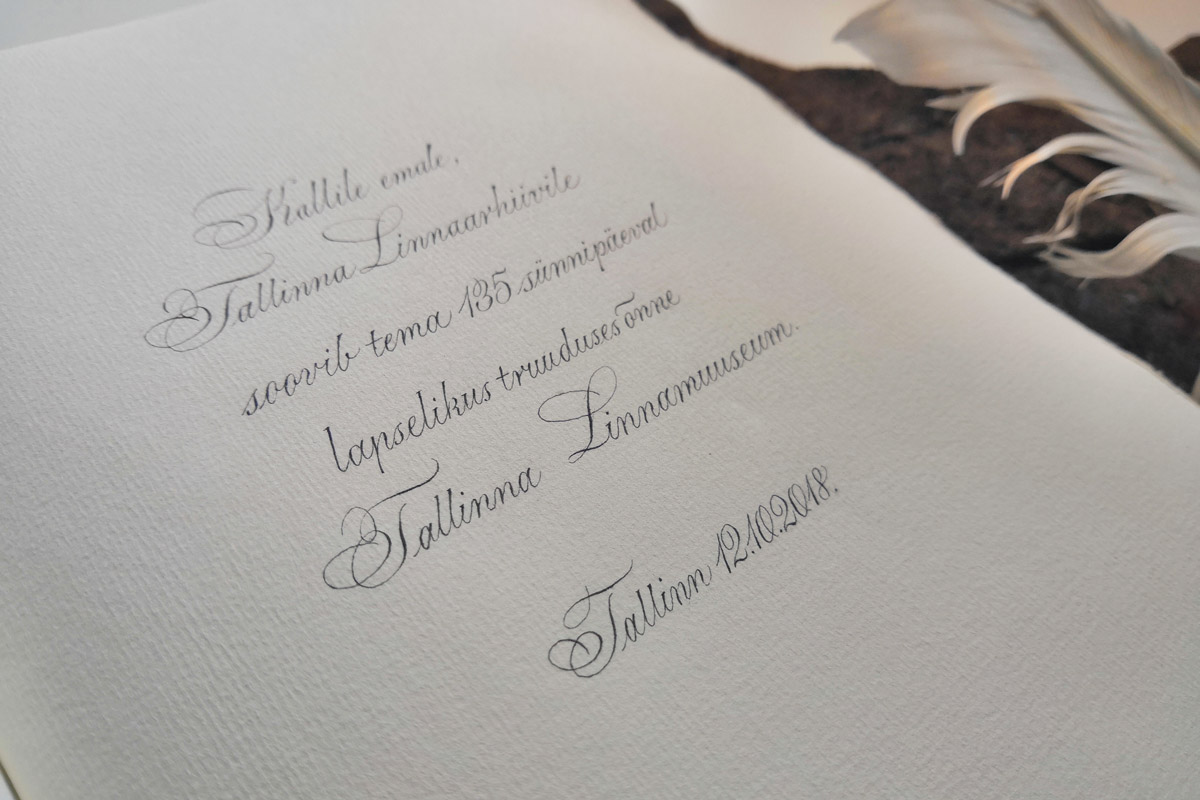 Kallile emale,
Tallinna Linnaarhiivile
soovib tema 135 sünnipäeval
lapselikus truuduses õnne
Tallinna Linnamuuseum.
Tallinn 12.10.2018.